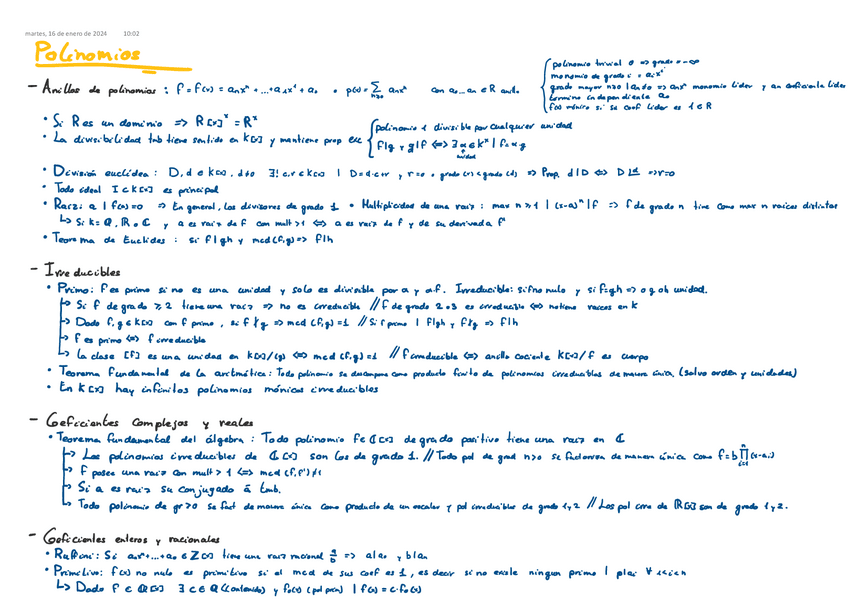 martes, 16 de enero de 2024 10:02
Polinomios
polinomio trivial 0 => grado = -∞
monomio de grado i = aᵢxⁱ
— Anillos de polinomios : f = f(x) = aₙxⁿ + ... + a₁x¹ + a₀ o p(x) = ∑ aₙxⁿ con a₀...aₙ ∈ R anillo.
n≥0
grado mayor n≥0 | aₙ≠0 => aₙxⁿ monomio lider y aₙ coeficiente lider
termino independiente a₀
f(x) mónico si su coef lider es 1 ∈ R
• Si R es un dominio => R[x]ˣ = Rˣ
• La divisibilidad tmb tiene sentido en K[x] y mantiene prop etc
polinomio 1 divisible por cualquier unidad
f|g y g|f <=> ∃ α ∈ Kˣ | f = α g
unidad
• División euclídea : D, d ∈ K[x], d≠0 ∃! c, r ∈ K[x] | D = d·c + r y r = 0 o grado (r) < grado (d) => Prop. d | D <=> => r = 0
• Todo ideal I ⊂ K[x] es principal
• Raíz: a | f(a) = 0 => En general, los divisores de grado 1 • Multiplicidad de una raiz : max n ≥ 1 | (x-a)ⁿ | f => f de grado n tiene como max n raices distintas
↳ Si K = Q, R o C y a es raiz de f con mult > 1 <=> a es raiz de f y de su derivada f'
• Teorema de Euclides : si f | gh y mcd (f,g) => f | h
— Irreducibles
• Primo: f es primo si no es una unidad y solo es divisible por α y α·f. Irreducible: si f no nulo y si f = gh => g o h unidad.
↳ Si f de grado ≥ 2 tiene una raiz => no es irreducible // f de grado 2 o 3 es irreducible <=> no tiene raices en K
↳ Dado f, g ∈ K[x] con f primo, si f ∤ g => mcd (f,g) = 1 // Si f primo | f|gh y f∤g => f|h
↳ f es primo <=> f irreducible
↳ La clase [f] es una unidad en K[x]/(g) <=> mcd (f,g) = 1 // f irreducible <=> anillo cociente K[x]/f es cuerpo
• Teorema fundamental de la aritmética: Todo polinomio se descompone como producto finito de polinomios irreducibles de manera única. (salvo orden y unidades)
• En K[x] hay infinitos polinomios mónicos irreducibles
— Coeficientes complejos y reales
• Teorema fundamental del álgebra : Todo polinomio f ∈ C[x] de grado positivo tiene una raiz en C
↳ Los polinomios irreducibles de C[x] son los de grado 1. // Todo pol de grad n>0 se factoriza de manera única como f = b ∏ (x-aᵢ)
↳ f posee una raiz con mult > 1 <=> mcd (f,f') ≠ 1
↳ Si a es raiz su conjugado ā tmb.
↳ Todo polinomio de gr>0 se fact de manera única como producto de un escalar y pol irreducibles de grado 1 y 2 // Los pol irre de R[x] son de grado 1 y 2.
— Coeficientes enteros y racionales
• Ruffini: Si aₙxⁿ + ... + a₀ ∈ Z[x] tiene una raiz racional a/b => a|a₀ y b|aₙ
• Primitivo: f(x) no nulo es primitivo si el mcd de sus coef es 1, es decir si no existe ningun primo | p|aᵢ ∀ 1≤i≤n
↳ Dado f ∈ Q[x] ∃ c ∈ Q (contenido) y f₀(x) (pol prim) | f(x) = c·f₀(x)